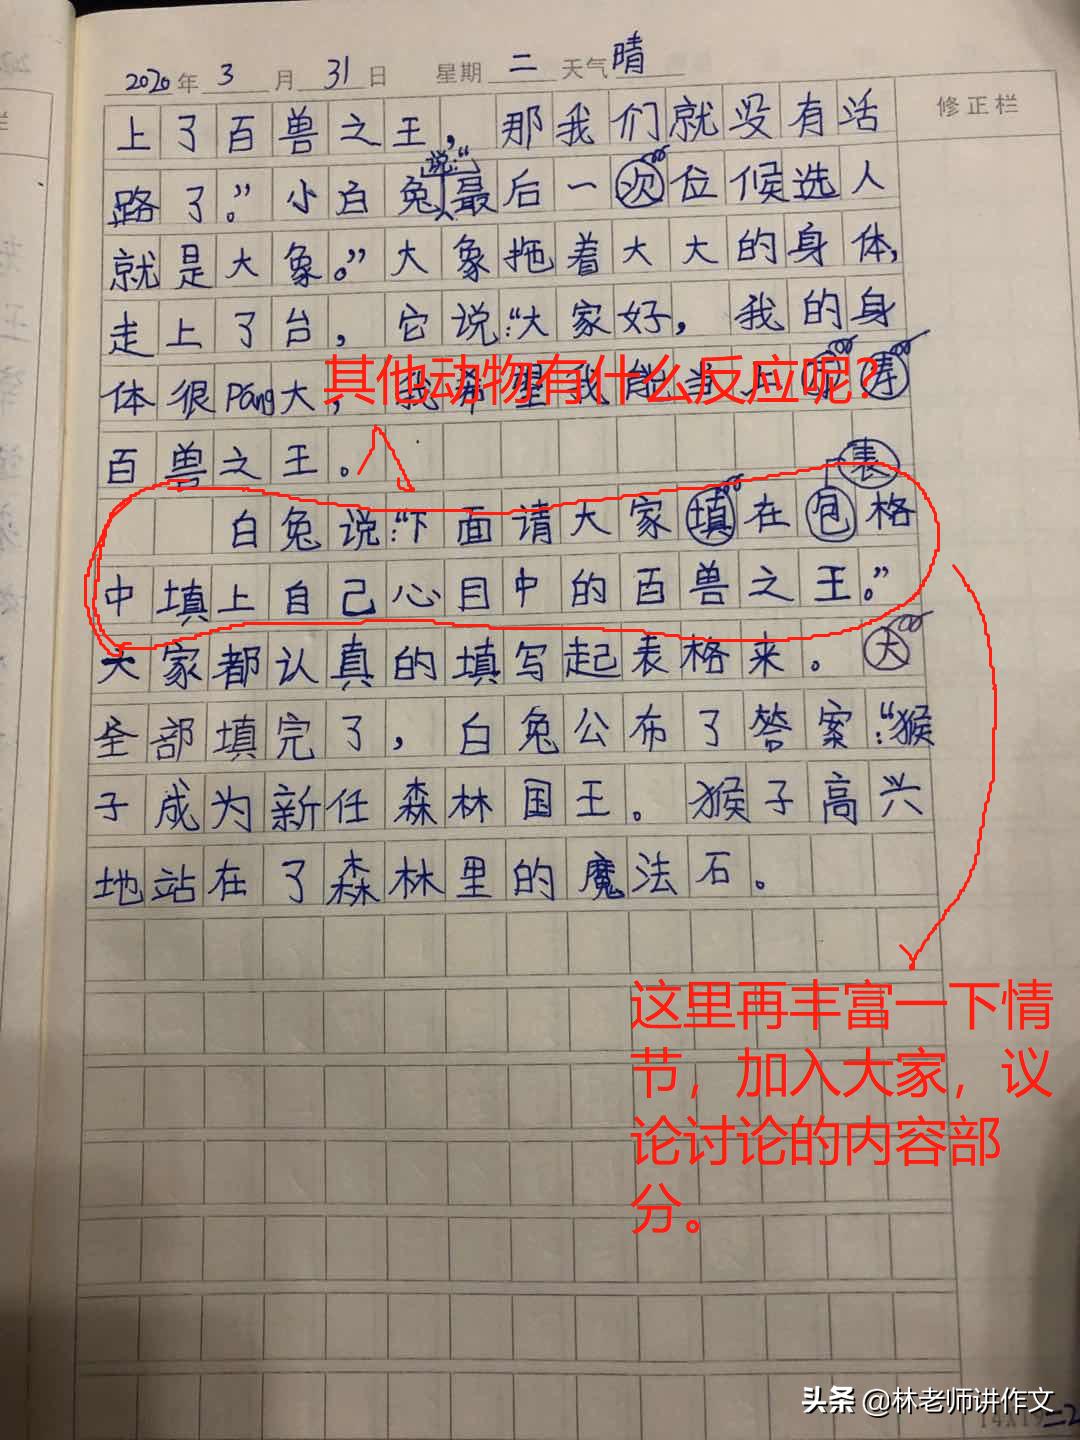 2020年3月31日 星期二 天气晴
修正栏
上了百兽之王，那我们就没有活
说:“
路了。”小白兔最后一次位候选人
就是大象。”大象拖着大大的身体,
走上了台，它说:“大家好，我的身
其他动物有什么反应呢？
体很Páng大，我希望我能当上
百兽之王。
表
白兔说:“下面请大家填在包格
中填上自己心目中的百兽之王。”
大家都认真的填写起表格来。大
全部填完了，白兔公布了答案:“猴
子成为新任森林国王。猴子高兴
地站在了森林里的魔法石。
这里再丰富一下情
节，加入大家，议
论讨论的内容部
分。
头条 @林老师讲作文